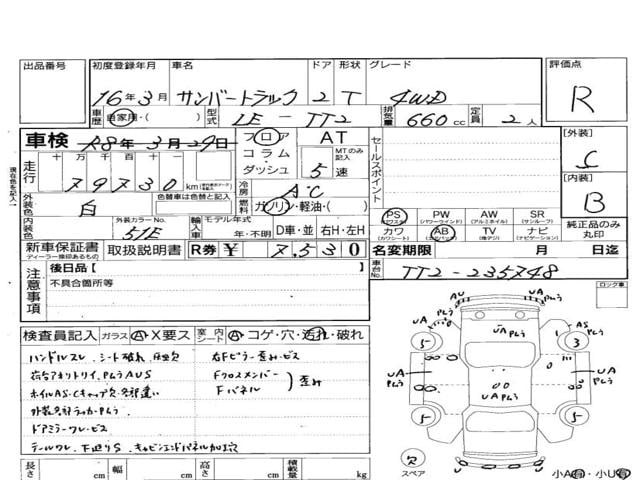 出品番号 初度登録年月 車名 ドア 形状 グレード 評価点
16年3月 サンバートラック 2 T 4WD R
車歴 自家用・( ) 型式 LE-TT2 排気量 660cc 定員 2人
車検 R8年3月29日 フロア AT 【外装】
コラム・ MTのみ記入 C
走行 十万千百十一 ダッシュ 5速 セールスポイント 【内装】
79730km 冷房 AC B
色替車は色替と記入 燃料 ガソリン・軽油・( )
外装色 白 外装カラーNo. 51E 輸入車 モデル年式 年・不明 D車・並 右H・左H
内装色
PS PW AW SR
(パワステ) (パワーウインド) (アルミホイル) (サンルーフ)
カワ AB TV ナビ
(カワシート) (エアバッグ) (地デジ) (ナビゲーション)
純正品のみ丸印
新車保証書 取扱説明書 R券 ¥ 7,530 名変期限 月 日迄
ディーラー捺印あるもの
車台No. TT2-235748
注意事項 後日品【 】
不具合箇所等
ロック車
検査員記入 ガラス A・X要ス 室内シート A・コゲ・穴・汚れ・破れ
ハンドルスレ、シート破れ、
右Fピラー歪み・ビス
Fクロスメンバー
Fパネル 歪み
ドアミラーワレ・ビス
テールワレ、下廻りS、キャビンエンドパネル加工穴
AU UA PLふ AS 5 3 5 5
欠 スペア
長さ cm 幅 cm 高さ cm 積載量 kg 小A有・小U有